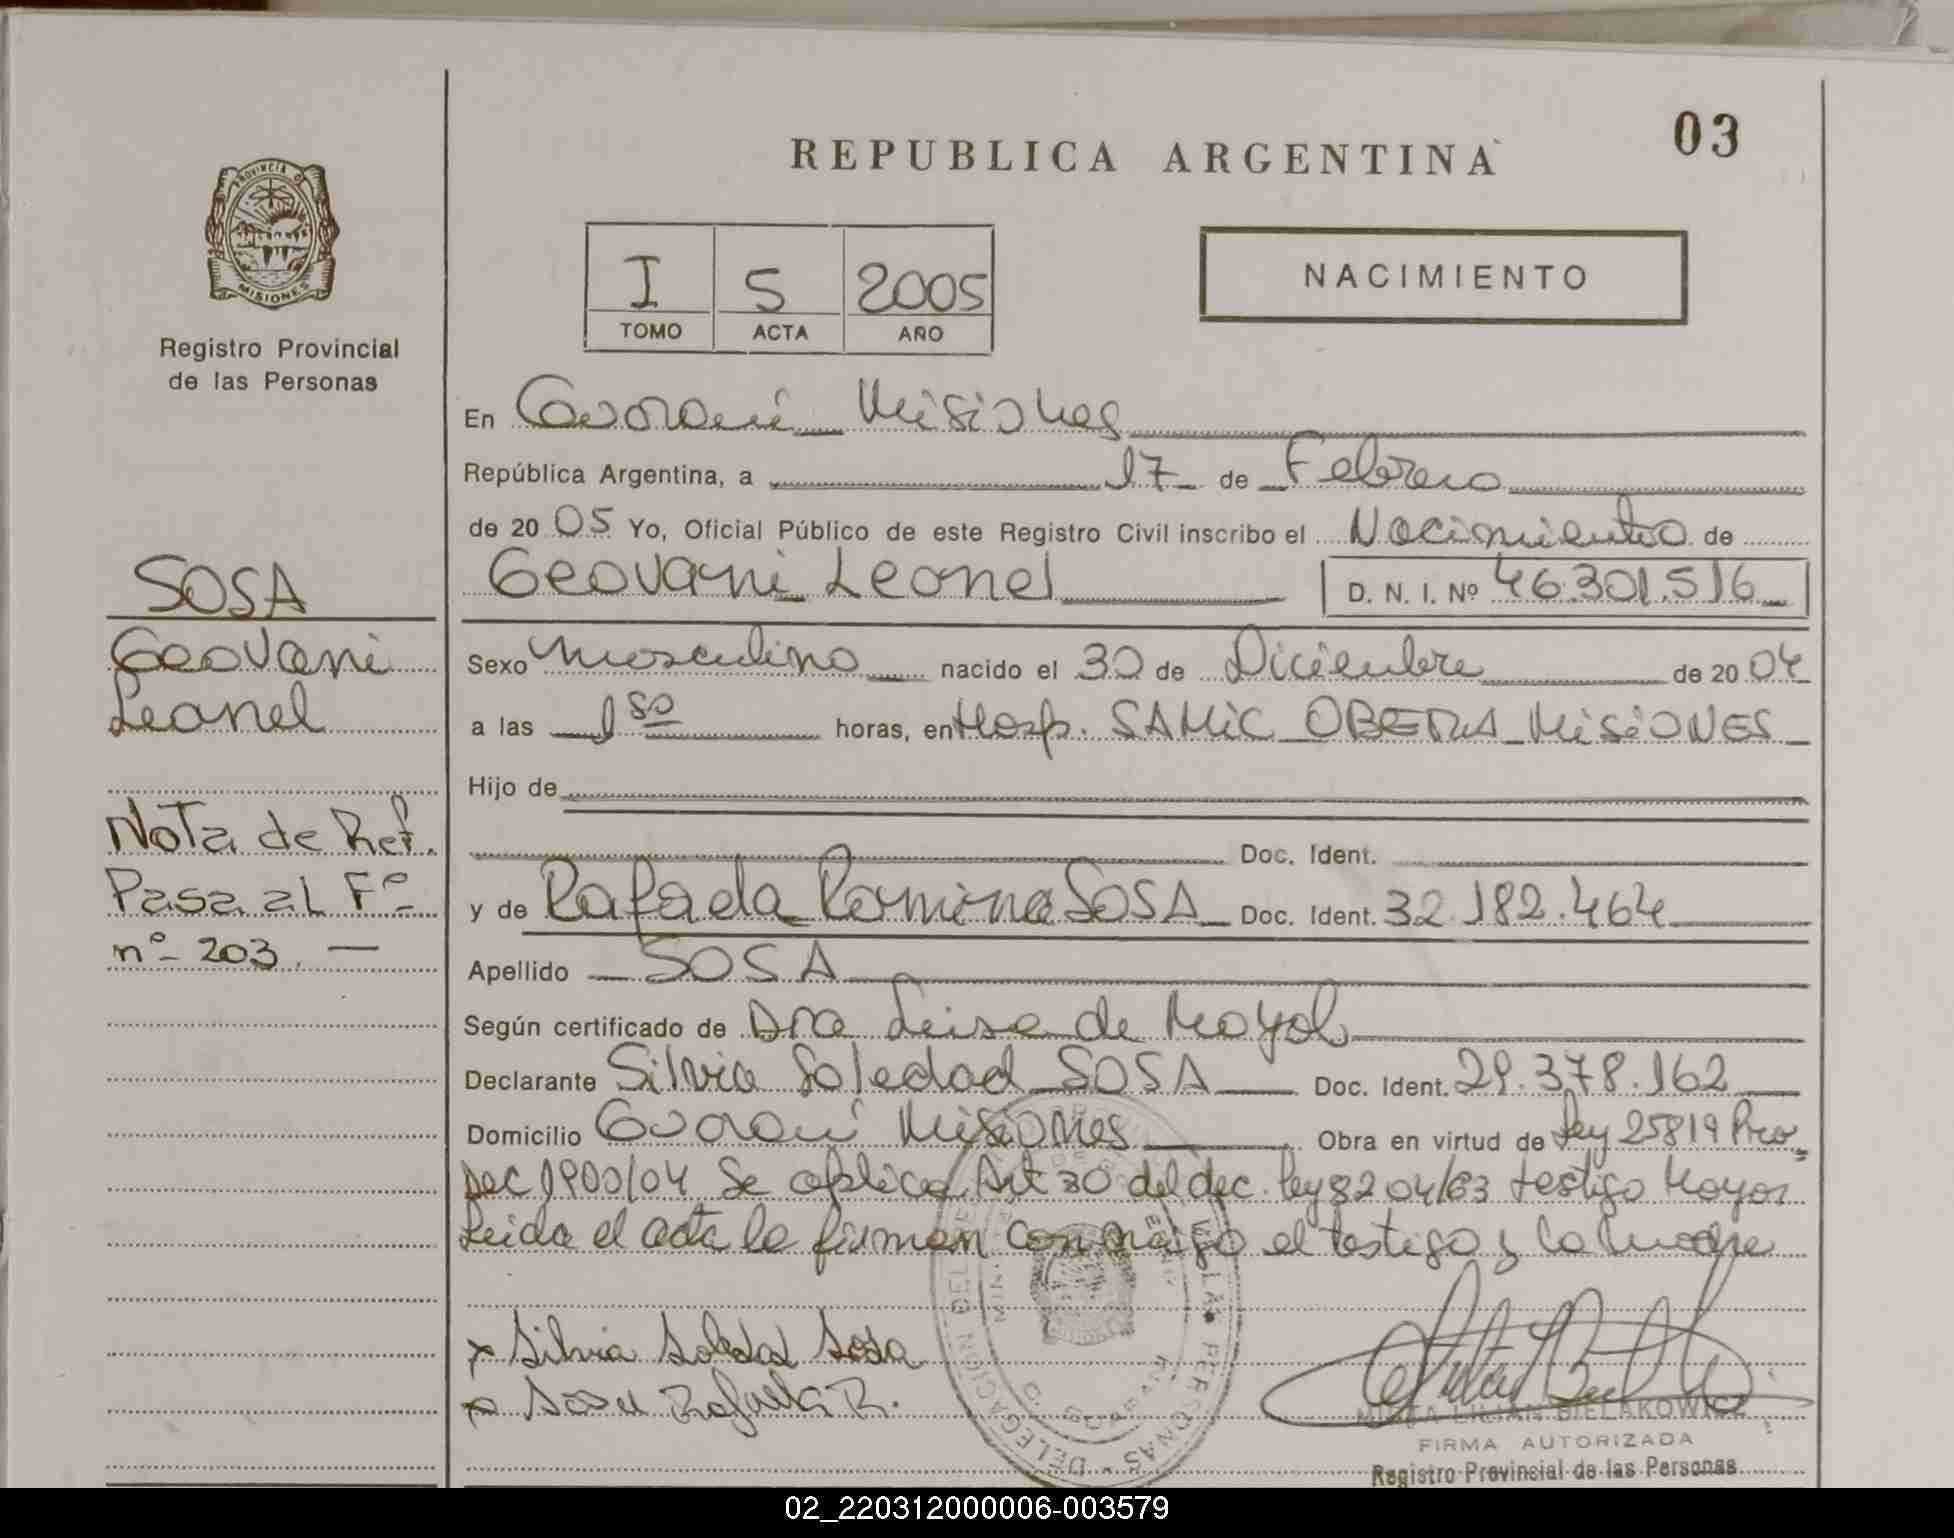 03
REPUBLICA ARGENTINA
PROVINCIA D
MISIONES
Registro Provincial
de las Personas
I 5 2005
TOMO ACTA AÑO
NACIMIENTO
En Guaraní Misiones
República Argentina, a 17 de Febrero
de 20 05 Yo, Oficial Público de este Registro Civil inscribo el Nacimiento de
Geovani Leonel D. N. I. Nº 46.301.516
Sexo Masculino nacido el 30 de Diciembre de 20 04
a las 1 50 horas, en Hosp. SAMiC OBERA MiSiONES
Hijo de
Doc. Ident.
y de Rafaela Romina SOSA Doc. Ident. 32.182.464
Apellido SOSA
Según certificado de Dra Leisa de Moyol
Declarante Silvia Soledad SOSA Doc. Ident. 29.378.162
Domicilio Guaraní Misiones Obra en virtud de Ley 25819 Pro
Dec 1900/04 Se aplica Art 30 del dec. ley 8204/63 testigo Mayor
Leida el acta la firman conmigo el testigo y la madre
x Silvia Soledad Sosa
x Sosa Rafaela R.
MIRTA LILIAN BIELAKOWICZ
FIRMA AUTORIZADA
Registro Provincial de las Personas
SOSA
Geovani
Leonel
Nota de Ref.
Pasa al Fº
nº 203.
02_220312000006-003579